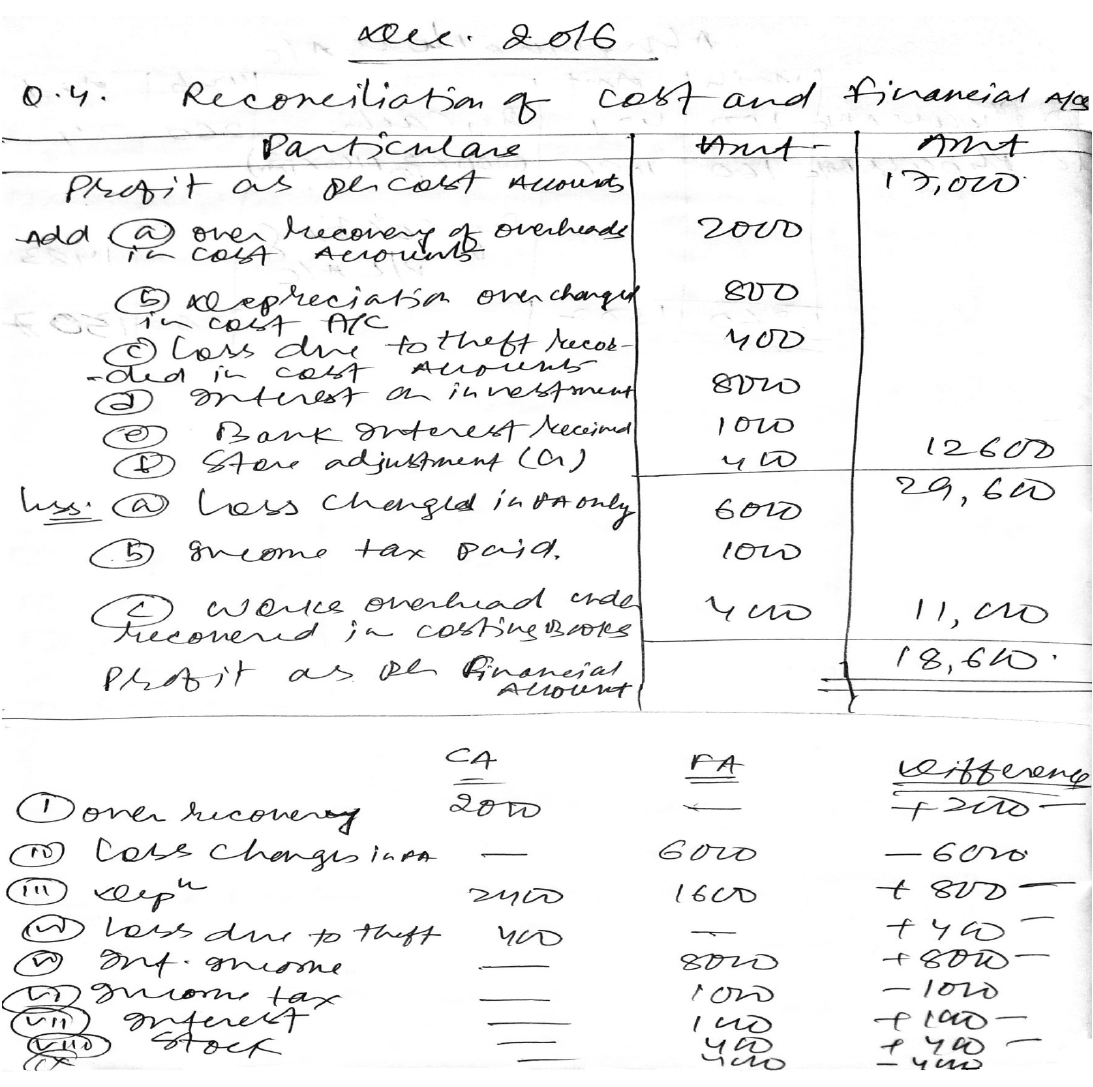 Dec. 2016
Q.4. Reconciliation of cost and financial A/cs
Particulars Amt Amt
Profit as per cost Accounts 17,000
Add (a) over recovery of overheads 2000
in cost Accounts
(b) Depreciation over charged 800
in cost A/C
(c) Loss due to theft recor- 400
-ded in cost Accounts
(d) Interest on investment 8000
(e) Bank Interest received 1000
(f) Store adjustment (Cr) 400 12600
29,600
Less: (a) Loss charged in FA only 6000
(b) Income tax paid. 1000
(c) Works overhead under 4000 11,000
recovered in costing Books
Profit as per Financial 18,600.
Account
CA FA Difference
(i) over recovery 2000 — +2000
(ii) Loss charges in FA — 6000 - 6000
(iii) Depn 2400 1600 + 800
(iv) Loss due to theft 400 — + 400
(v) Int. income — 8000 + 8000
(vi) Income tax — 1000 - 1000
(vii) Interest — 1000 + 1000
(viii) Stock — 400 + 400
(ix — 4000 - 4000